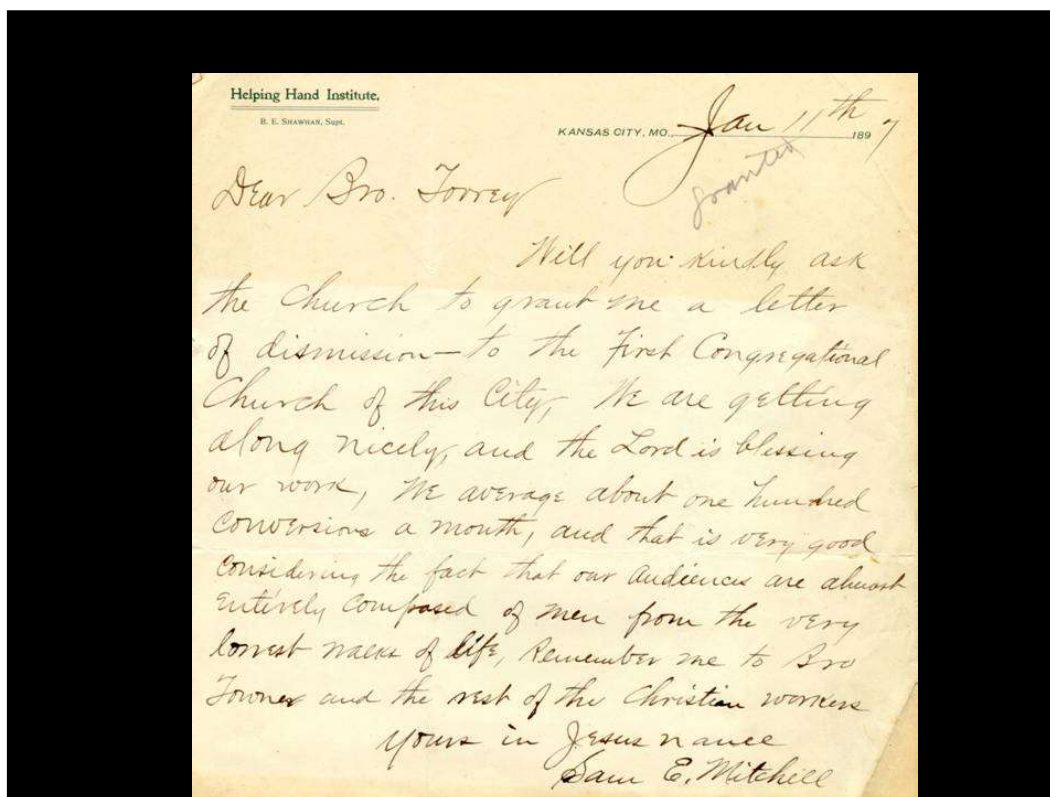 Helping Hand Institute.
B. E. SHAWHAN, Supt.
KANSAS CITY, MO., Jan 11th 1897
granted
Dear Bro. Torrey
Will you kindly ask
the Church to grant me a letter
of dismission — to the First Congregational
Church of this City, We are getting
along nicely, and the Lord is blessing
our work, We average about one hundred
conversions a month, and that is very good
considering the fact that our audiences are almost
entirely composed of men from the very
lowest walks of life, Remember me to Bro
Towner and the rest of the Christian workers
yours in Jesus name
Sam E. Mitchell